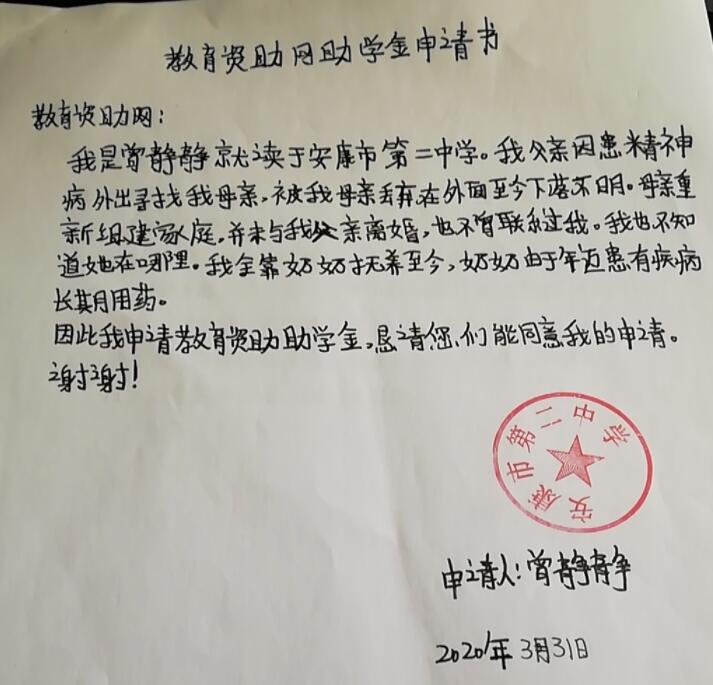 教育资助网助学金申请书
教育资助网：
我是曾静静就读于安康市第二中学。我父亲因患精神
病外出寻找我母亲，被我母亲丢弃在外面至今下落不明。母亲重
新组建家庭，并未与我父亲离婚，也不曾联系过我。我也不知
道她在哪里。我全靠奶奶抚养至今，奶奶由于年迈患有疾病
长期用药。
因此我申请教育资助助学金，恳请您们能同意我的申请。
谢谢！
安康市第二中学
申请人：曾静静
2020年3月31日